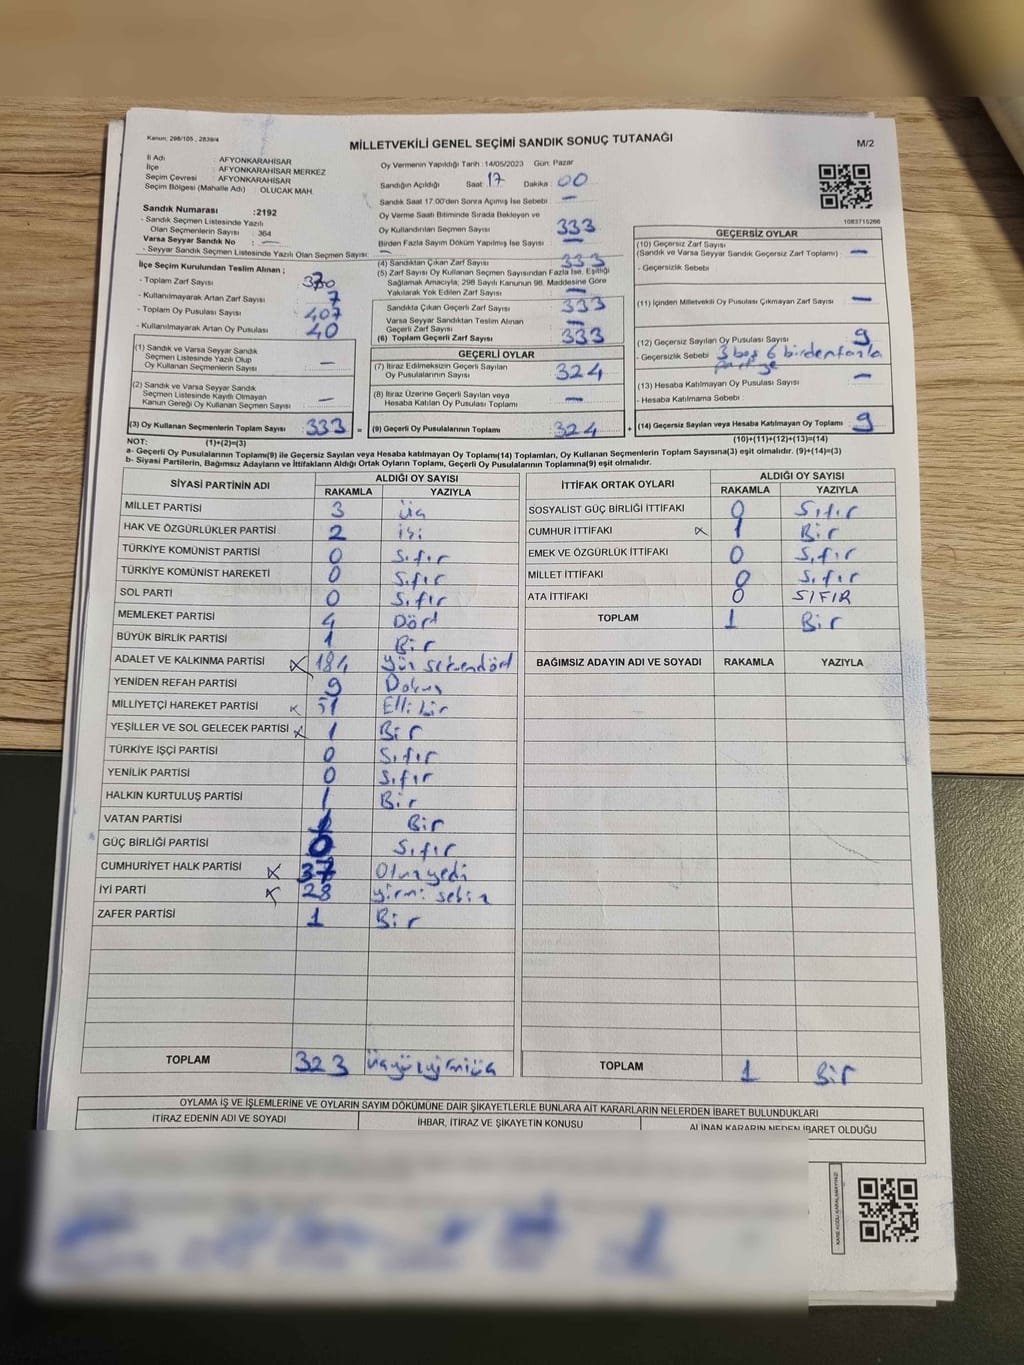 Kanun: 298/105 , 2839/4
MİLLETVEKİLİ GENEL SEÇİMİ SANDIK SONUÇ TUTANAĞI
M/2
İl Adı : AFYONKARAHİSAR
İlçe : AFYONKARAHİSAR MERKEZ
Seçim Çevresi : AFYONKARAHİSAR
Seçim Bölgesi (Mahalle Adı) : OLUCAK MAH.
Sandık Numarası :2192
- Sandık Seçmen Listesinde Yazılı
Olan Seçmenlerin Sayısı : 364
Varsa Seyyar Sandık No : —
- Seyyar Sandık Seçmen Listesinde Yazılı Olan Seçmen Sayısı: —
İlçe Seçim Kurulundan Teslim Alınan ;
- Toplam Zarf Sayısı
- Kullanılmayarak Artan Zarf Sayısı 7
- Toplam Oy Pusulası Sayısı 407
- Kullanılmayarak Artan Oy Pusulası 40
(1) Sandık ve Varsa Seyyar Sandık
Seçmen Listesinde Yazılı Olup
Oy Kullanan Seçmenlerin Sayısı —
(2) Sandık ve Varsa Seyyar Sandık
Seçmen Listesinde Kayıtlı Olmayan
Kanun Gereği Oy Kullanan Seçmen Sayısı —
(3) Oy Kullanan Seçmenlerin Toplam Sayısı 333 =
Oy Vermenin Yapıldığı Tarih : 14/05/2023 Gün: Pazar
Sandığın Açıldığı Saat: 17 Dakika : 00
Sandık Saat 17.00'den Sonra Açılmış İse Sebebi : —
Oy Verme Saati Bitiminde Sırada Bekleyen ve
Oy Kullandırılan Seçmen Sayısı : 333
Birden Fazla Sayım Döküm Yapılmış İse Sayısı : —
(4) Sandıktan Çıkan Zarf Sayısı : 333
(5) Zarf Sayısı Oy Kullanan Seçmen Sayısından Fazla İse, Eşitliği
Sağlamak Amacıyla; 298 Sayılı Kanunun 98. Maddesine Göre
Yakılarak Yok Edilen Zarf Sayısı : —
Sandıkta Çıkan Geçerli Zarf Sayısı : 333
Varsa Seyyar Sandıktan Teslim Alınan
Geçerli Zarf Sayısı : —
(6) Toplam Geçerli Zarf Sayısı : 333
GEÇERLİ OYLAR
(7) İtiraz Edilmeksizin Geçerli Sayılan
Oy Pusulalarının Sayısı : 324
(8) İtiraz Üzerine Geçerli Sayılan veya
Hesaba Katılan Oy Pusulası Toplamı : —
(9) Geçerli Oy Pusulalarının Toplamı : 324 +
1083715266
GEÇERSİZ OYLAR
(10) Geçersiz Zarf Sayısı
(Sandık ve Varsa Seyyar Sandık Geçersiz Zarf Toplamı) : —
- Geçersizlik Sebebi :
(11) İçinden Milletvekili Oy Pusulası Çıkmayan Zarf Sayısı : —
(12) Geçersiz Sayılan Oy Pusulası Sayısı : 9
- Geçersizlik Sebebi : 3 boş 6 birdenfazla
partiye
(13) Hesaba Katılmayan Oy Pusulası Sayısı : —
- Hesaba Katılmama Sebebi :
(14) Geçersiz Sayılan veya Hesaba Katılmayan Oy Toplamı : 9
NOT: (1)+(2)=(3) (10)+(11)+(12)+(13)=(14)
a- Geçerli Oy Pusulalarının Toplamı(9) ile Geçersiz Sayılan veya Hesaba katılmayan Oy Toplamı(14) Toplamları, Oy Kullanan Seçmenlerin Toplam Sayısına(3) eşit olmalıdır. (9)+(14)=(3)
b- Siyasi Partilerin, Bağımsız Adayların ve İttifakların Aldığı Ortak Oyların Toplamı, Geçerli Oy Pusulalarının Toplamına(9) eşit olmalıdır.
SİYASİ PARTİNİN ADI ALDIĞI OY SAYISI
RAKAMLA YAZIYLA
MİLLET PARTİSİ 3 üç
HAK VE ÖZGÜRLÜKLER PARTİSİ 2 iki
TÜRKİYE KOMÜNİST PARTİSİ 0 Sıfır
TÜRKİYE KOMÜNİST HAREKETİ 0 Sıfır
SOL PARTİ 0 Sıfır
MEMLEKET PARTİSİ 4 Dört
BÜYÜK BİRLİK PARTİSİ 1 Bir
ADALET VE KALKINMA PARTİSİ x 184 yüz seksendört
YENİDEN REFAH PARTİSİ 9 Dokuz
MİLLİYETÇİ HAREKET PARTİSİ x 51 Ellibir
YEŞİLLER VE SOL GELECEK PARTİSİ x 1 Bir
TÜRKİYE İŞÇİ PARTİSİ 0 Sıfır
YENİLİK PARTİSİ 0 Sıfır
HALKIN KURTULUŞ PARTİSİ 1 Bir
VATAN PARTİSİ 1 Bir
GÜÇ BİRLİĞİ PARTİSİ 0 Sıfır
CUMHURİYET HALK PARTİSİ x 37 Otuzyedi
İYİ PARTİ x 28 yirmi sekiz
ZAFER PARTİSİ 1 Bir
TOPLAM 323 üçyüzyirmiüç
İTTİFAK ORTAK OYLARI ALDIĞI OY SAYISI
RAKAMLA YAZIYLA
SOSYALİST GÜÇ BİRLİĞİ İTTİFAKI 0 Sıfır
CUMHUR İTTİFAKI x 1 Bir
EMEK VE ÖZGÜRLÜK İTTİFAKI 0 Sıfır
MİLLET İTTİFAKI 0 Sıfır
ATA İTTİFAKI 0 SIFIR
TOPLAM 1 Bir
BAĞIMSIZ ADAYIN ADI VE SOYADI RAKAMLA YAZIYLA
TOPLAM 1 Bir
OYLAMA İŞ VE İŞLEMLERİNE VE OYLARIN SAYIM DÖKÜMÜNE DAİR ŞİKAYETLERLE BUNLARA AİT KARARLARIN NELERDEN İBARET BULUNDUKLARI
İTİRAZ EDENİN ADI VE SOYADI İHBAR, İTİRAZ VE ŞİKAYETİN KONUSU ALINAN KARARIN NEDEN İBARET OLDUĞU
KARE KODU KARALAMAYINIZ!